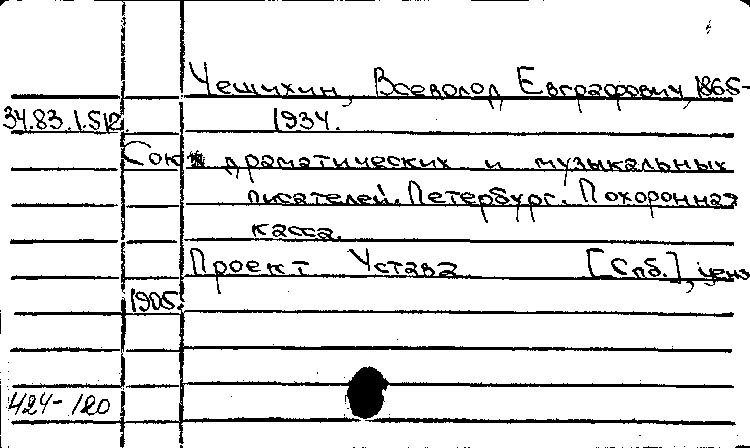 Чешихин, Всеволод Евграфович, 1865-
34.83.1.512. 1934.
Сок драматических и музыкальных
писателей. Петербург. Похоронная
касса.
Проект Устава. [Спб.], ценз
1905.
424-120